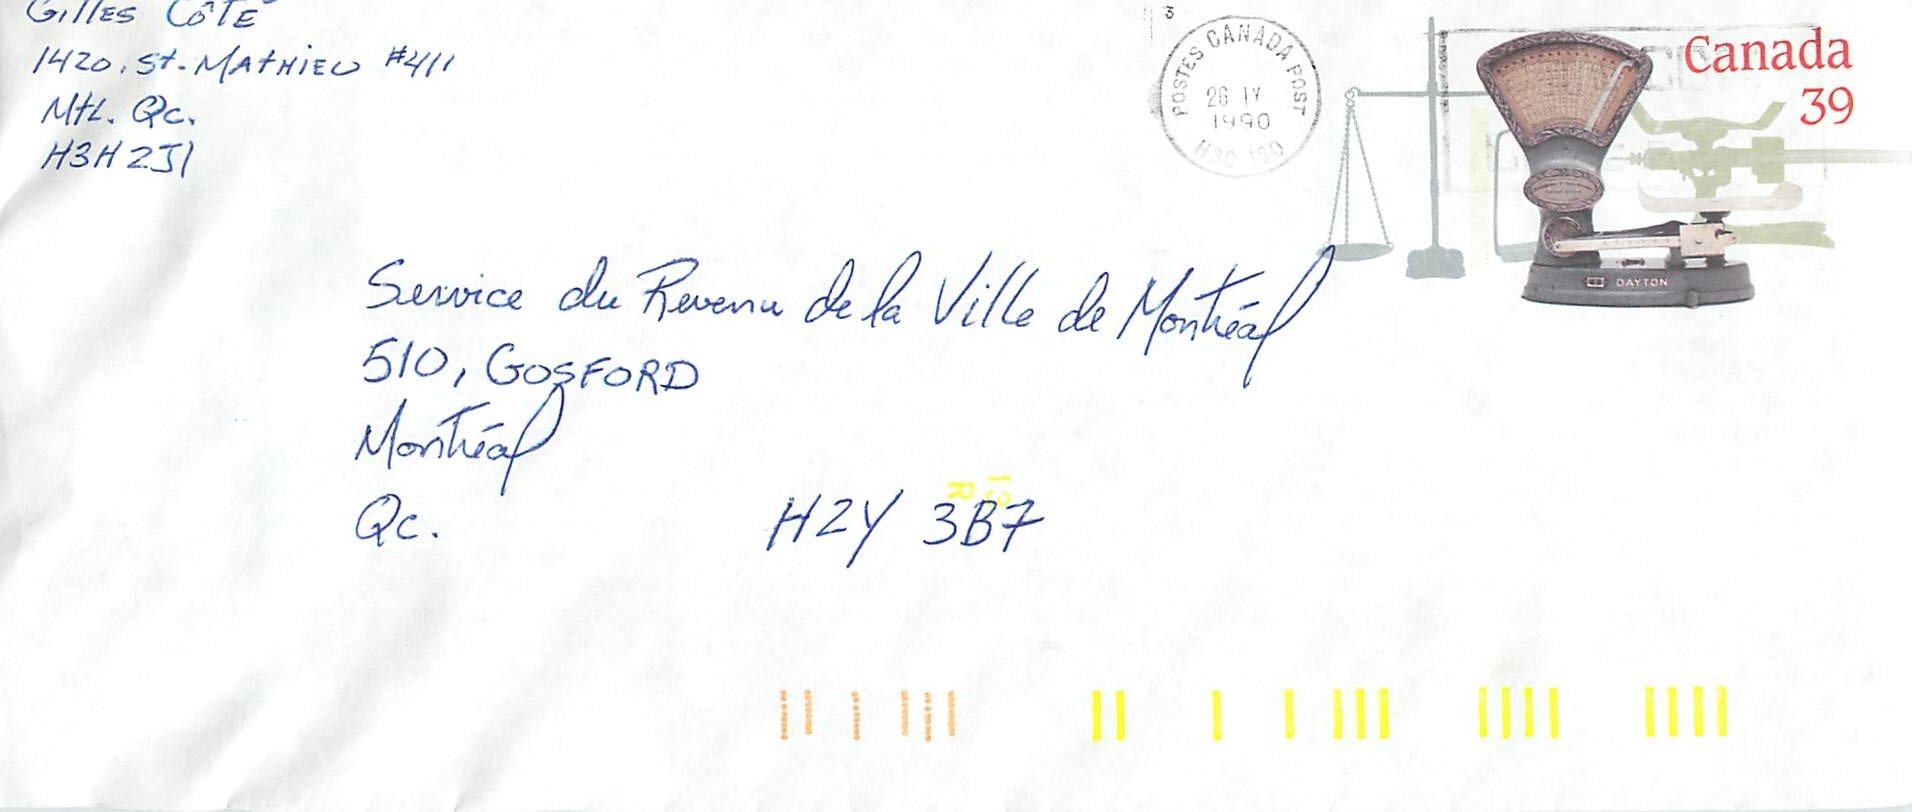 Gilles Côté
1420, St. Mathieu #411
Mtl. Qc.
H3H 2J1
3
POSTES CANADA POST
26 IV
1990
Canada
39
DAYTON
Service du Revenu de la Ville de Montréal
510, GOSFORD
Montréal
Qc. H2Y 3B7
13
R